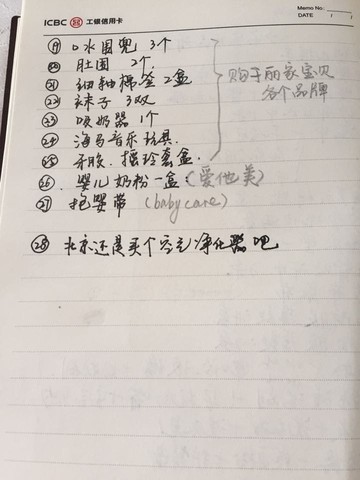 ICBC 工银信用卡
Memo No.
DATE / /
⑲ 口水围兜 3个
⑳ 肚围 2个
㉑ 细轴棉签 2盒
㉒ 袜子 3双
㉓ 吸奶器 1个
㉔ 海马音乐玩具
㉕ 牙胶、摇铃套盒
购于丽家宝贝
各个品牌
㉖ 婴儿奶粉一盒(爱他美)
㉗ 抱婴带 (babycare)
㉘ 北京还是买个空气净化器吧